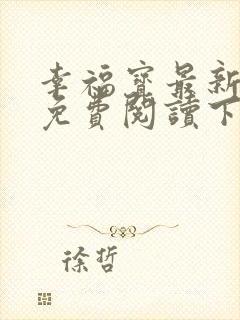 幸福寶最新
免費閱讀下
徐哲